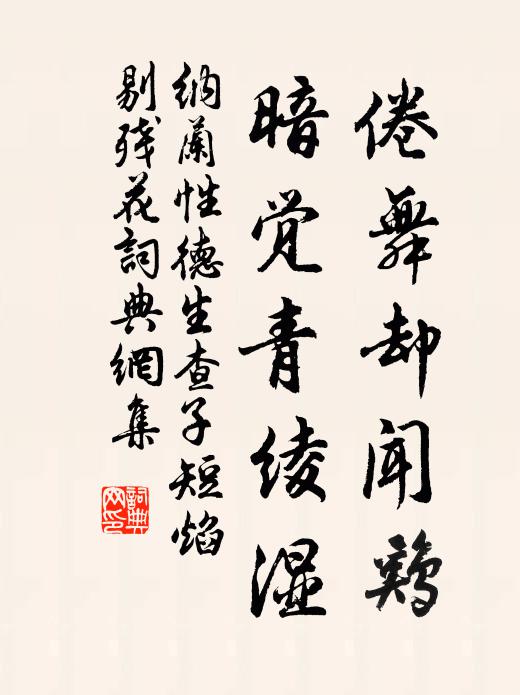 倦舞却闻鷄
暗觉青绫湿
纳蘭性德生查子短焰
剔残花詞典網集
詞典网印